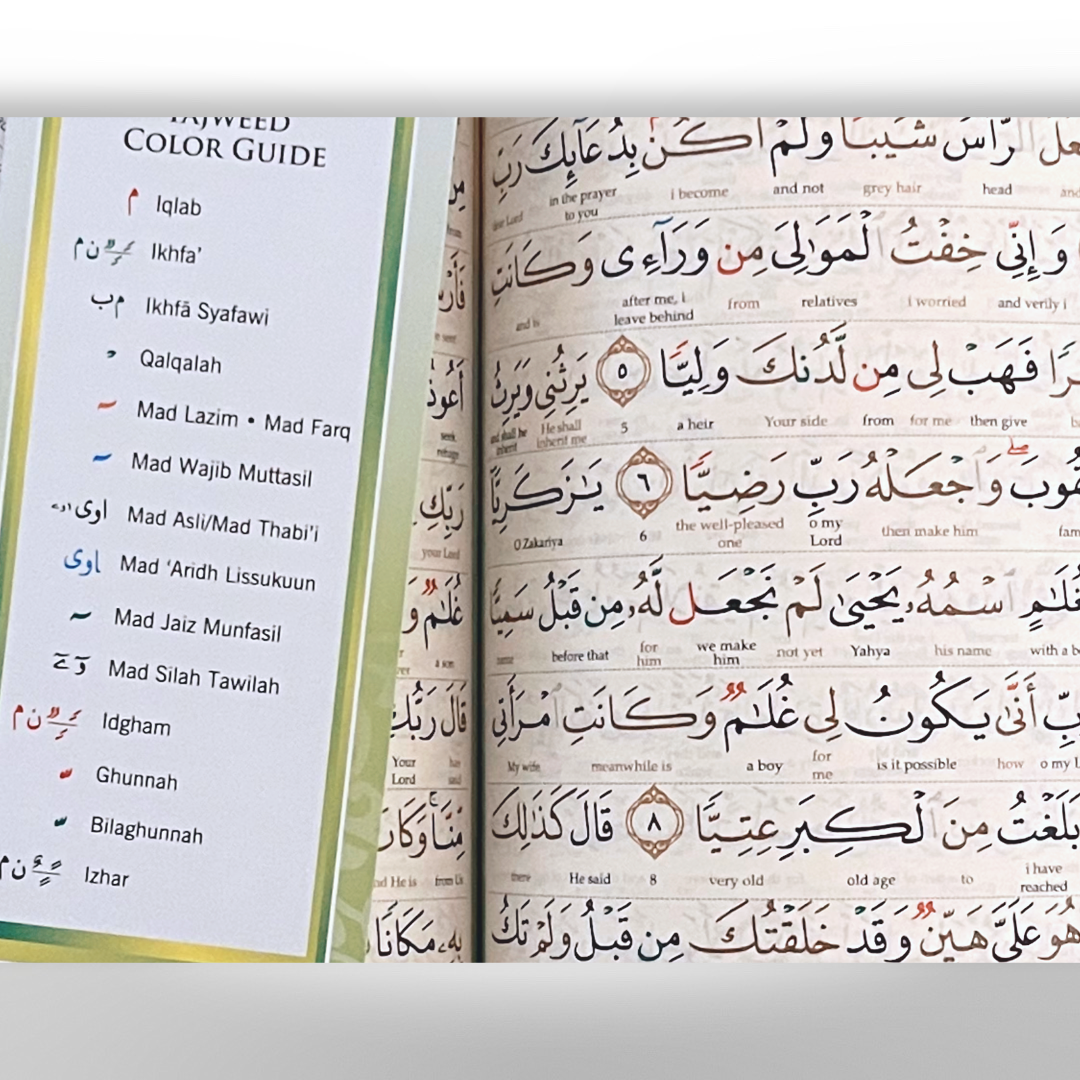 TAJWEED
COLOR GUIDE
م Iqlab
Ikhfa’
م ب Ikhfā Syafawi
Qalqalah
Mad Lazim • Mad Farq
Mad Wajib Muttasil
اوى Mad Asli/Mad Thabi’i
اوى Mad ‘Aridh Lissukuun
Mad Jaiz Munfasil
Mad Silah Tawilah
Idgham
Ghunnah
Bilaghunnah
Izhar
your Lord
a son
Your
Lord
قَالَ رَبُّكَ
مِّنَّا وَكَانَ
nd He is from Us
بِهِۦ مَكَانًا
الرَّأْسُ شَيْبًا وَلَمْ أَكُنۢ بِدُعَآئِكَ رَبِّ
head grey hair and not i become in the prayer
to you
وَإِنِّى خِفْتُ ٱلْمَوَٰلِىَ مِن وَرَآءِى وَكَانَتِ
and verily i i worried relatives from after me, i
leave behind
and is
فَهَبْ لِى مِن لَّدُنكَ وَلِيًّا ٥ يَرِثُنِى وَيَرِثُ
then give for me from Your side a heir 5 He shall
inherit me
and shall he
inherit
وَٱجْعَلْهُ رَبِّ رَضِيًّا ٦ يَـٰزَكَرِيَّا
then make him o my
Lord
the well-pleased
one
6 O Zakariya
ٱسْمُهُۥ يَحْيَىٰ لَمْ نَجْعَل لَّهُۥ مِن قَبْلُ سَمِيًّا
his name Yahya not yet we make
him
for
him
before that name
أَنَّىٰ يَكُونُ لِى غُلَـٰمٌ وَكَانَتِ ٱمْرَأَتِى
how is it possible for
me
a boy meanwhile is My wife
بَلَغْتُ مِنَ ٱلْكِبَرِ عِتِيًّا ٨ قَالَ كَذَٰلِكَ
i have
reached
to old age very old 8 He said there
هُوَ عَلَىَّ هَيِّنٌ وَقَدْ خَلَقْتُكَ مِن قَبْلُ وَلَمْ تَكُ